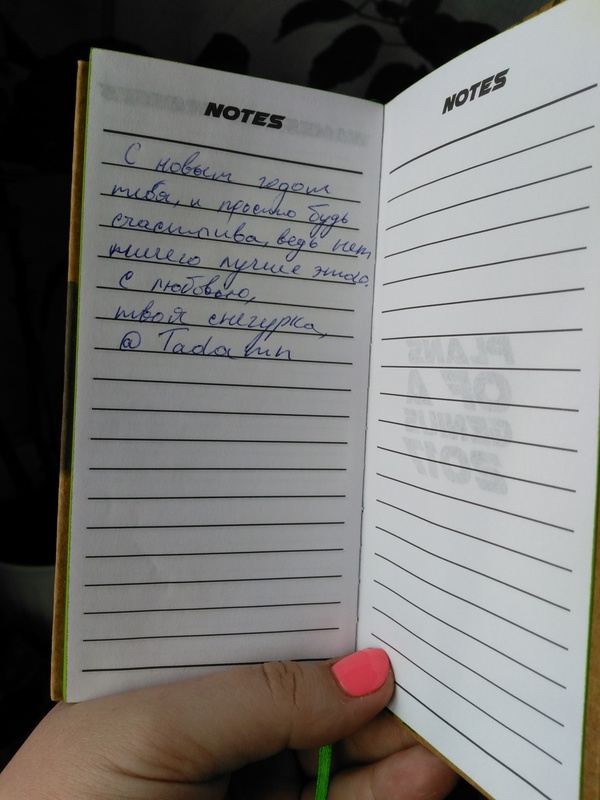 NOTES
С новым годом
тебя, и просто будь
счастлива, ведь нет
ничего лучше этого.
С любовью,
твоя снегурка,
@Tadamn
NOTES
PLANS
OF A
GENIUS
2017